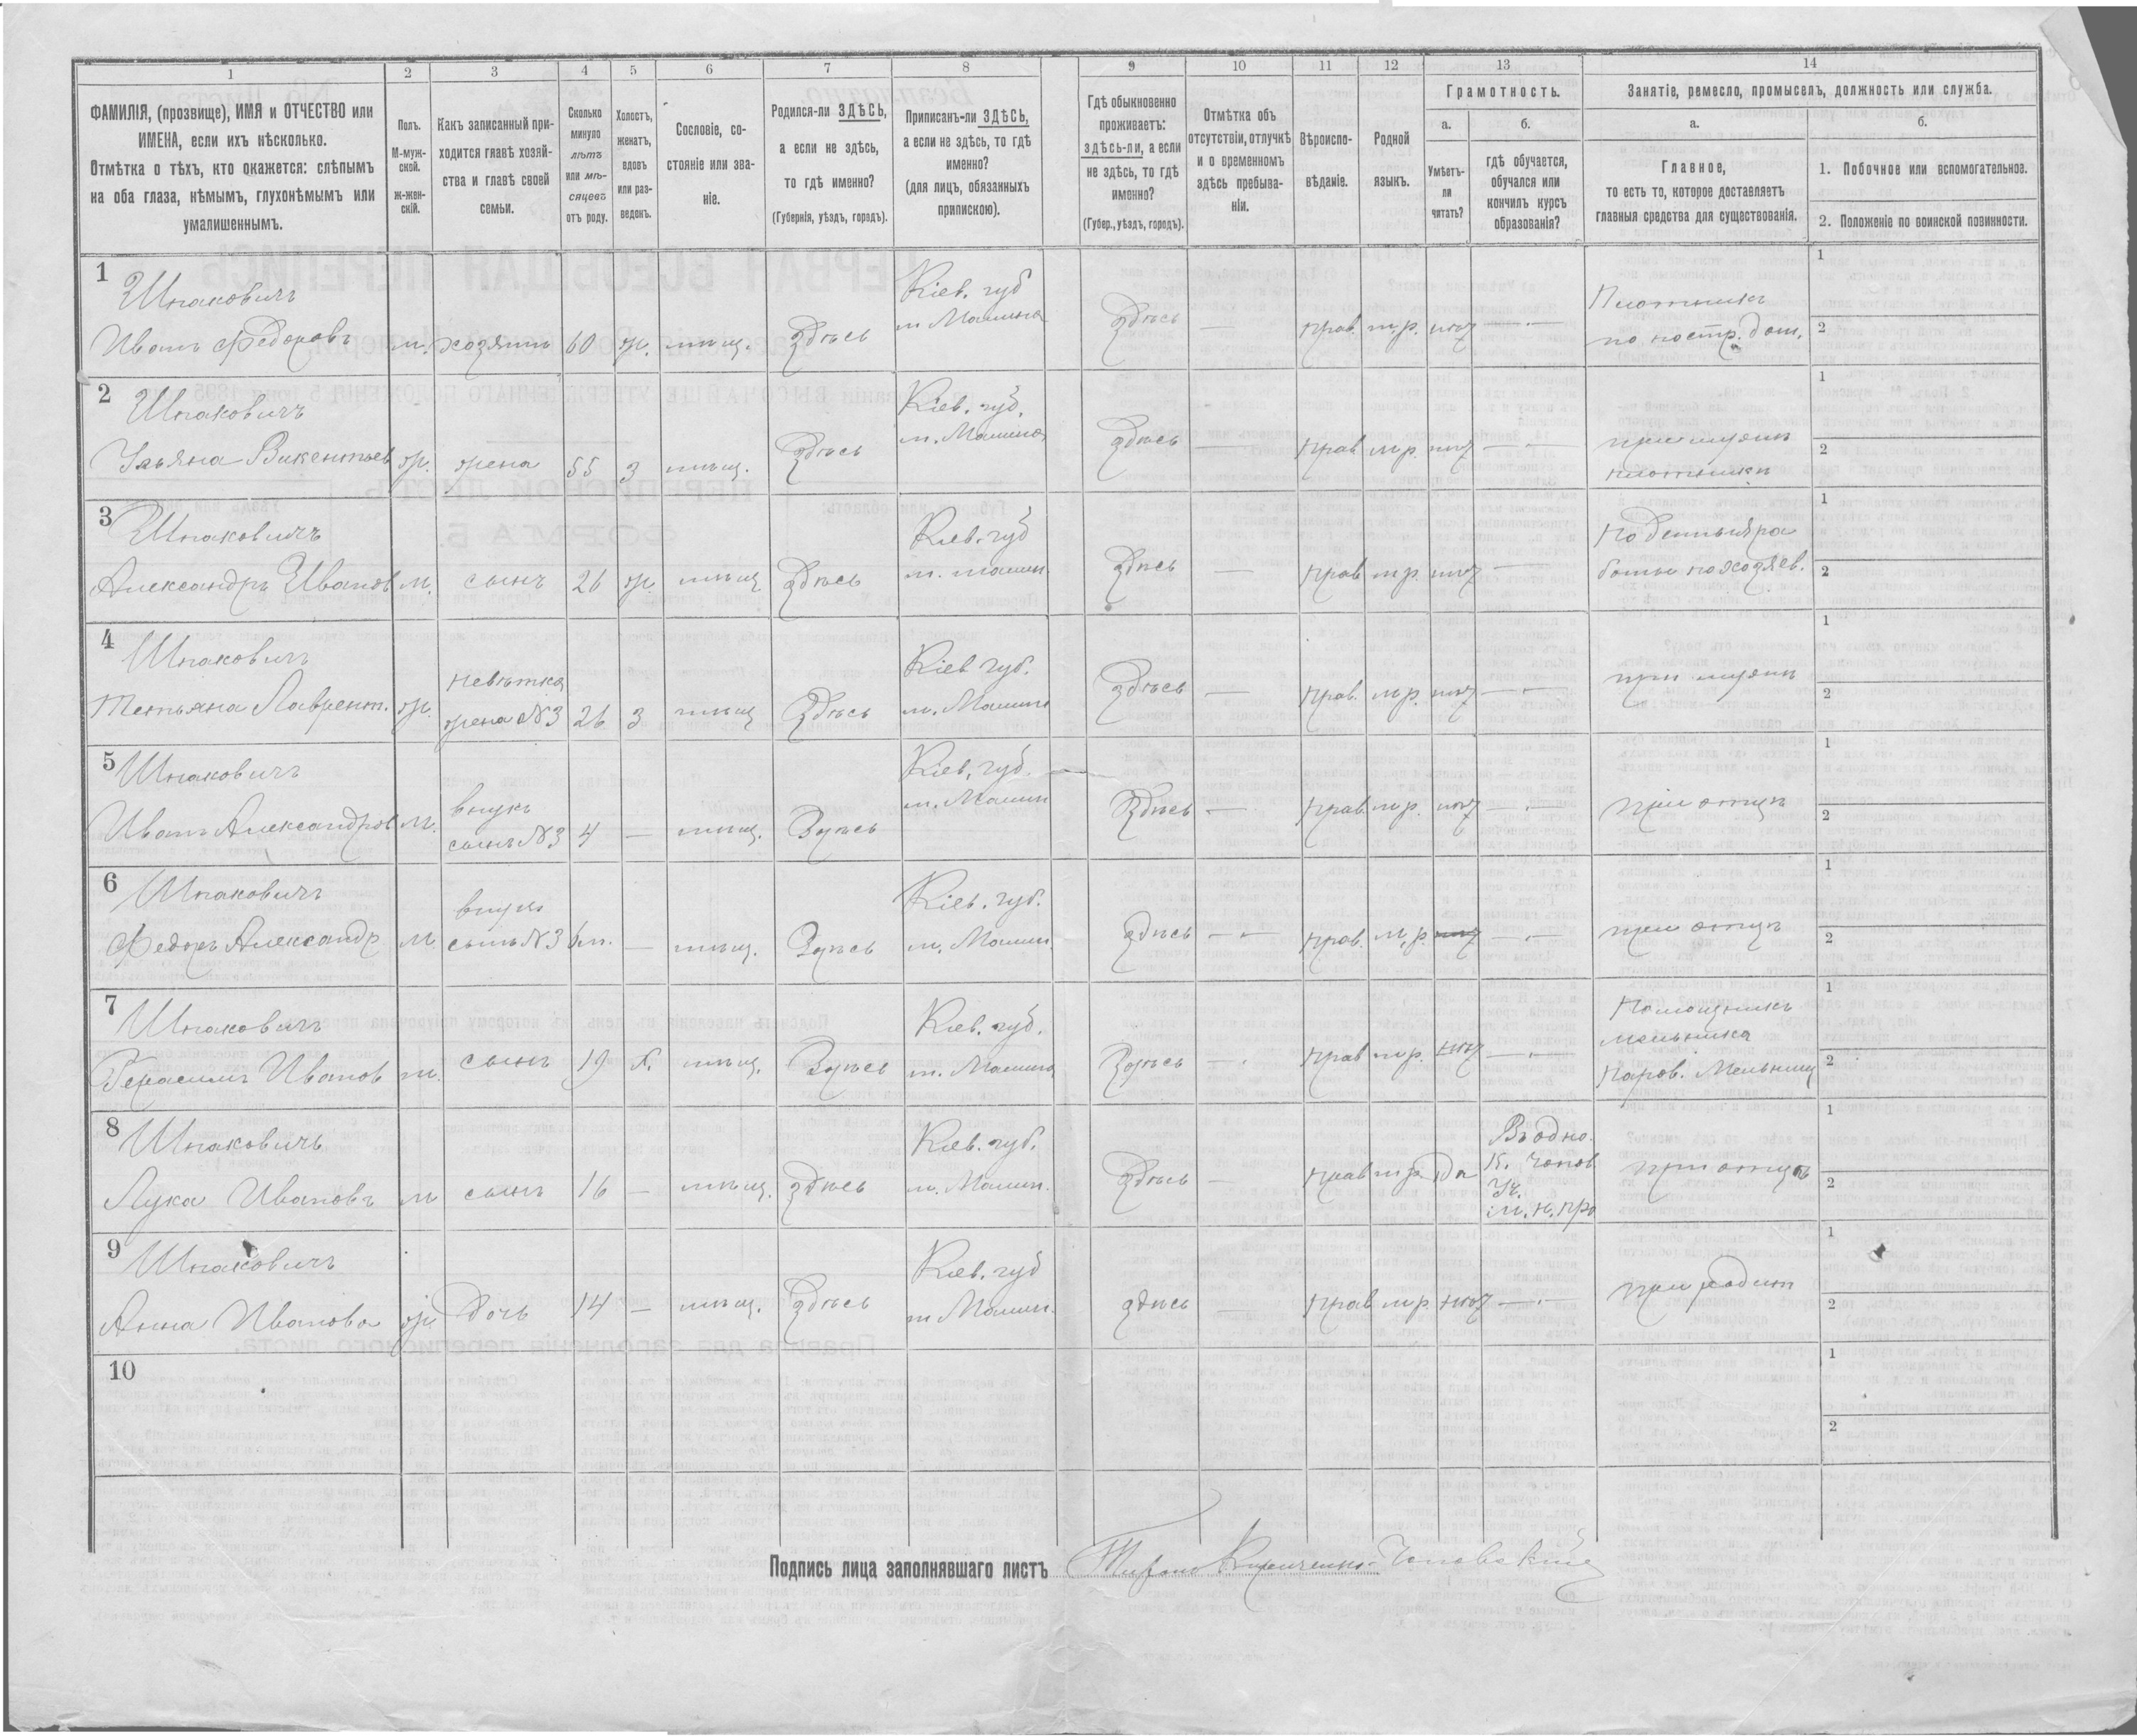 1 2 3 4 5 6 7 8 9 10 11 12 13 14
ФАМИЛІЯ, (прозвище), ИМЯ и ОТЧЕСТВО или
ИМЕНА, если ихъ нѣсколько.
Отмѣтка о тѣхъ, кто окажется: слѣпымъ
на оба глаза, нѣмымъ, глухонѣмымъ или
умалишеннымъ.
Полъ.
М-муж-
ской.
ж-жен-
скій.
Какъ записанный при-
ходится главѣ хозяй-
ства и главѣ своей
семьи.
Сколько
минуло
лѣтъ
или мѣ-
сяцевъ
отъ роду.
Холостъ,
женатъ,
вдовъ
или раз-
веденъ.
Сословіе, со-
стояніе или зва-
ніе.
Родился-ли ЗДѢСЬ,
а если не здѣсь,
то гдѣ именно?
(Губернія, уѣздъ, городъ).
Приписанъ-ли ЗДѢСЬ,
а если не здѣсь, то гдѣ
именно?
(для лицъ, обязанныхъ
припискою).
Гдѣ обыкновенно
проживаетъ:
здѣсь-ли, а если
не здѣсь, то гдѣ
именно?
(Губер., уѣздъ, городъ).
Отмѣтка объ
отсутствіи, отлучкѣ
и о временномъ
здѣсь пребыва-
ніи.
Вѣроиспо-
вѣданіе.
Родной
языкъ.
Грамотность.
а.
Умѣетъ-
ли
читать?
б.
гдѣ обучается,
обучался или
кончилъ курсъ
образованія?
Занятіе, ремесло, промыселъ, должность или служба.
а.
Главное,
то есть то, которое доставляетъ
главныя средства для существованія.
б.
1. Побочное или вспомогательное.
2. Положеніе по воинской повинности.
1
Шпаковичъ Кіев. губ Плотникъ 1
Иванъ Федоровъ м. хозяинъ 60 ж. мѣщ. Здѣсь м Малина Здѣсь — прав. м.р. нѣт — по постр. дом. 2
2
Шпаковичъ Кіев. губ. 1
Ульяна Викентьев ж. жена 55 З мѣщ. Здѣсь м. Малина Здѣсь — прав м.р. нѣт — при мужѣ плотникѣ 2
3
Шпаковичъ Кіев. губ 1
Александръ Иванов м. сынъ 26 ж. мѣщ Здѣсь м. малин. Здѣсь — прав м.р. нѣт — Поденныяра
боты по хозяев. 2
4
Шпаковичъ невѣтка Кіев губ. 1
Тетьяна Лаврент. ж. жена №3 26 З мѣщ Здѣсь м. Малин Здѣсь — прав. м.р. нѣт — при мужѣ 2
5
Шпаковичъ внукъ Кіев. губ. 1
Иванъ Александров М. сынъ №3 4 — мѣщ. Здѣсь м. Малин Здѣсь — прав. м.р. нѣт — при отцѣ 2
6
Шпаковичъ внукъ Кіев. губ. 1
Федоръ Александр М сынъ №3 6м. — мѣщ. Здѣсь м. Малин. Здѣсь — прав. м.р. нѣт — при отцѣ 2
7
Шпаковичъ Кіев. губ. Помощникъ 1
Герасимъ Иванов м. сынъ 19 х. мѣщ. Здѣсь м. Малина Здѣсь — прав м.р. нѣт — мельника
Паров. Мельниц 2
8
Шпаковичъ Кіев. губ. Въ одно. 1
Лука Ивановъ м сынъ 16 — мѣщ. Здѣсь м. Малин. Здѣсь — прав м.р. Да К. Чопов
Уч.
м. н. про при отцѣ 2
9
Шпаковичъ Кіев. губ 1
Анна Иванова ж Дочь 14 — мѣщ. Здѣсь м Малин. здѣсь — прав м.р. нѣт — при родит 2
10
1
2
Подпись лица заполнявшаго листъ